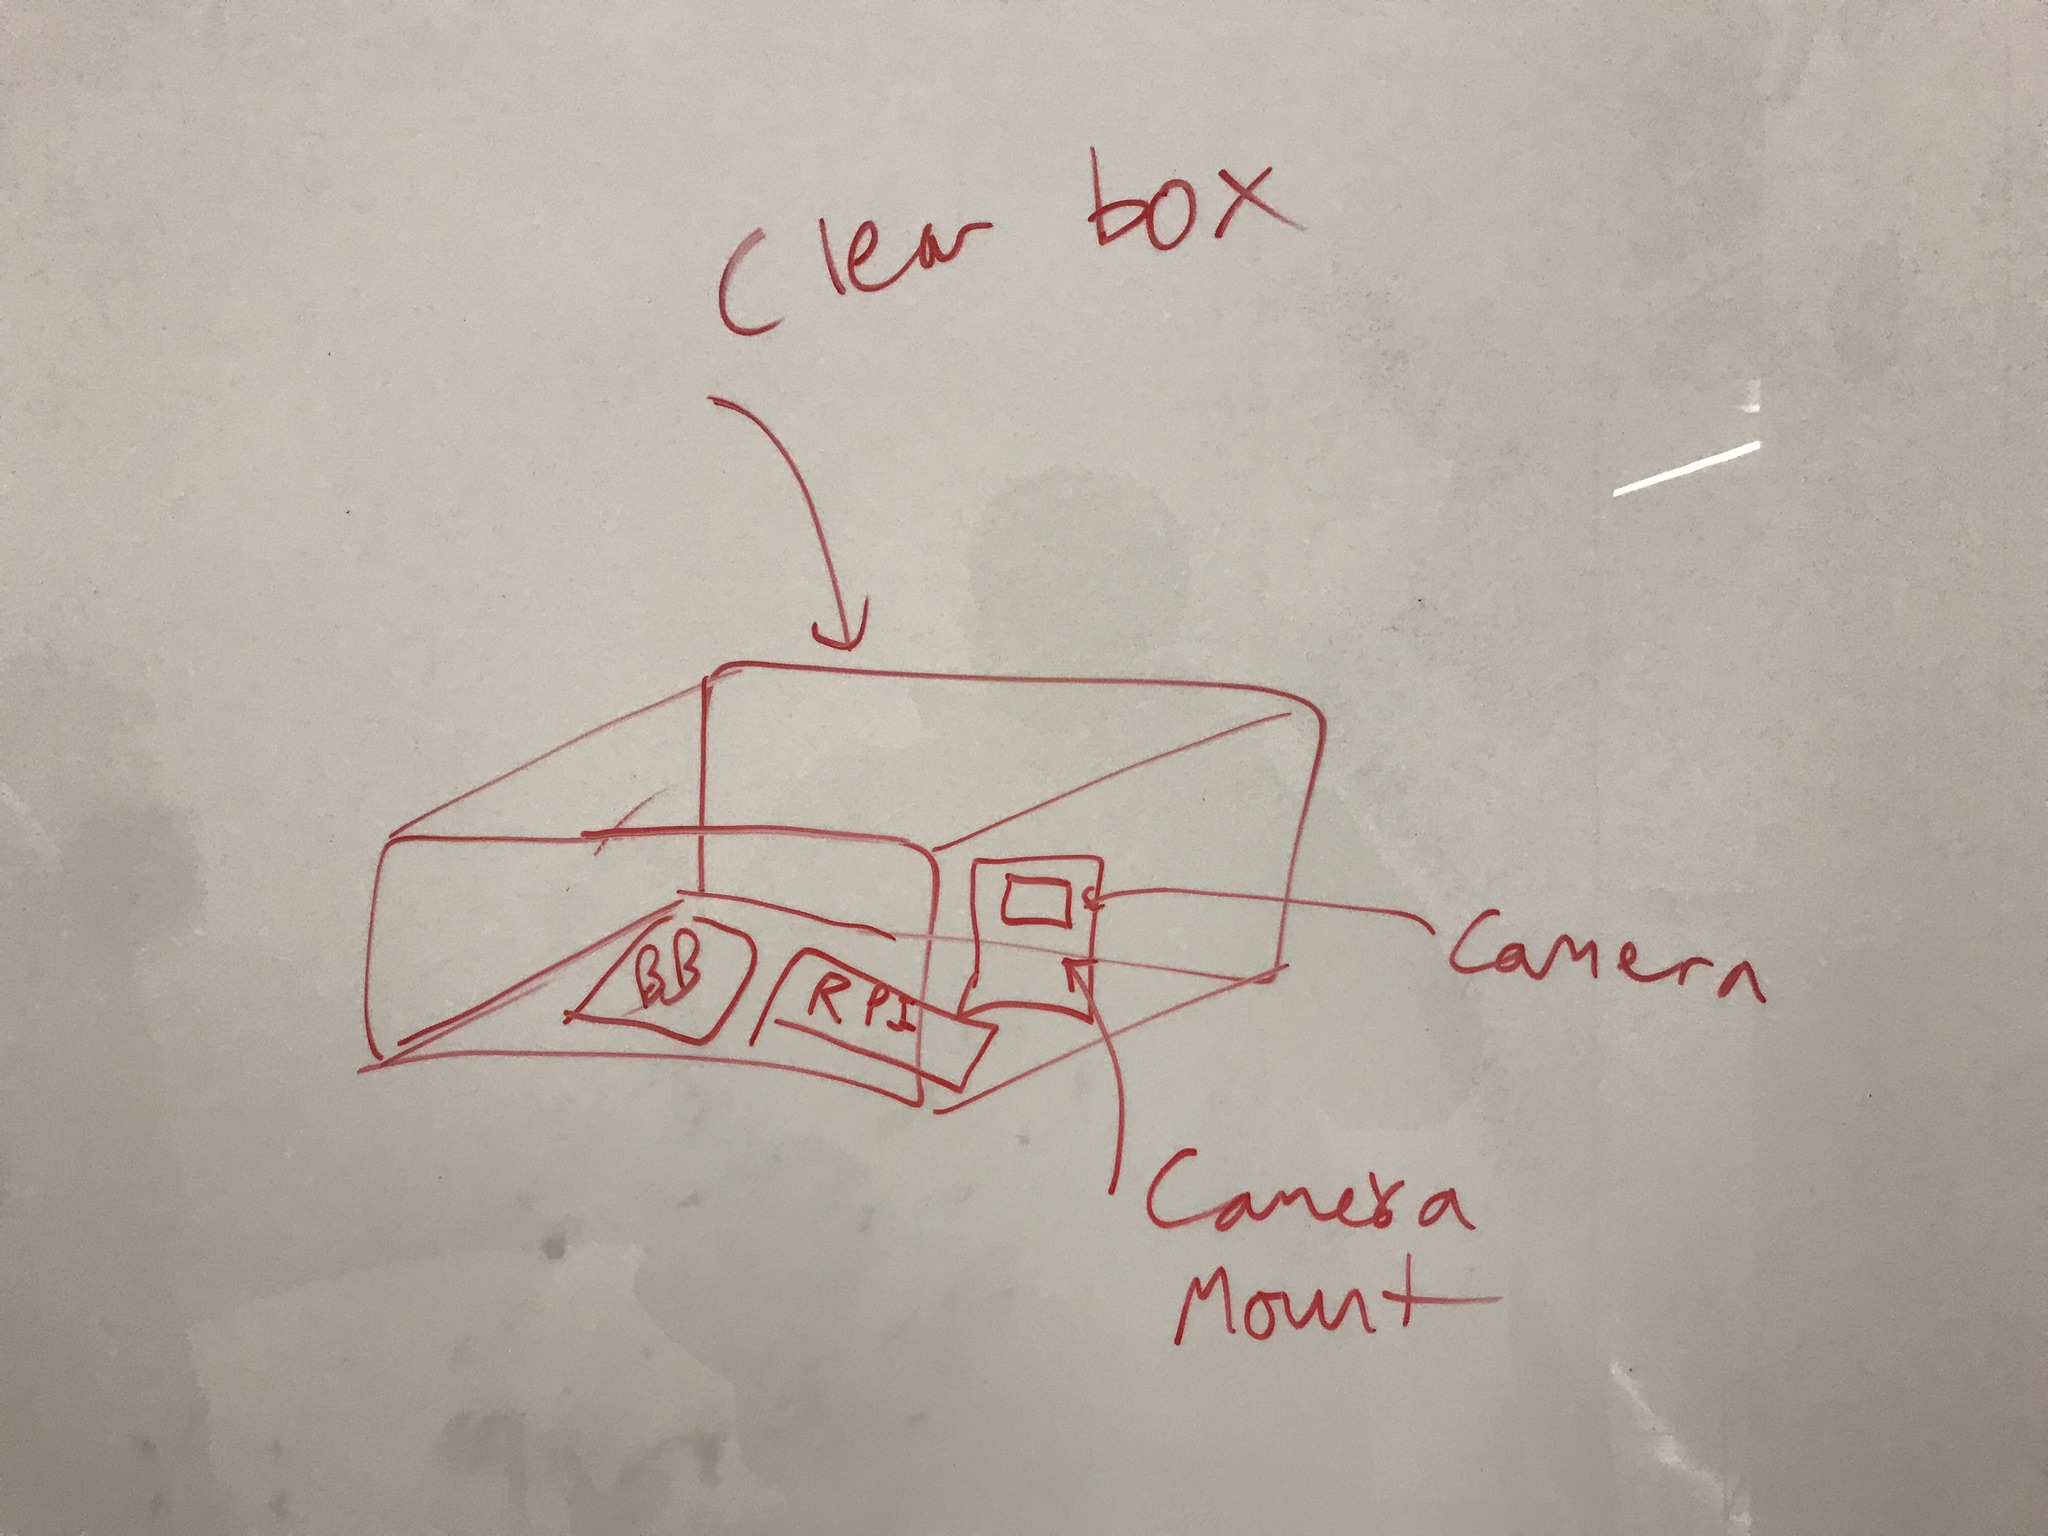 Clear box
BB
RPI
Camera
Camera
Mount